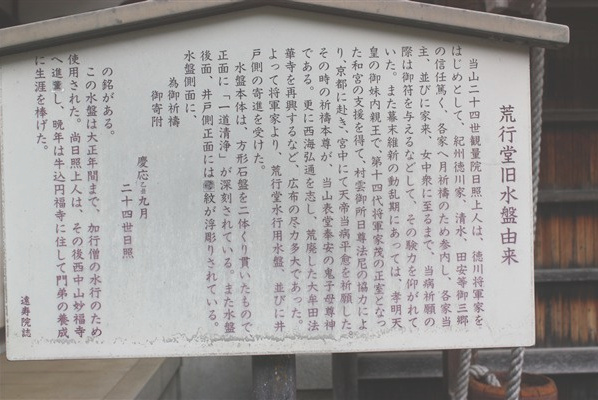 荒行堂旧水盤由来
当山二十四世観量院日照上人は、徳川将軍家を
はじめとして、紀州徳川家、清水、田安等御三郷
の信任篤く、各家へ月祈禱のため参内し、各家当
主、並びに家来、女中衆に至るまで、当病祈願の
際は御符を与えるなどして、その験力を仰がれて
いた。また幕末維新の動乱期にあっては、孝明天
皇の御妹内親王で、第十四代将軍家茂の正室となっ
た和宮の支援を得て、村雲御所日尊法尼の協力によ
り、京都に赴き、宮中にて天帝当病平愈を祈願した。
その時の祈禱本尊が、当山表堂奉安の鬼子母尊神
である。更に西海弘通を志し、荒廃した大牟田法
華寺を再興するなど、広布の尽力多大であった。
よって将軍家より、荒行堂水行用水盤、並びに井
戸側の寄進を受けた。
水盤本体は、方形石盤を二体くり貫いたもので
正面に「一道清浄」が深刻されている。また水盤
後面、井戸側正面には紋が浮彫りされている。
水盤側面に、
為御祈禱
御寄附
慶応乙丑九月
二十四世日照
の銘がある。
この水盤は大正年間まで、加行僧の水行のため
使用された。尚日照上人は、その後西中山妙福寺
へ進し、晩年は牛込円福寺に住して門弟の養成
に生涯を捧げた。
遠寿院誌